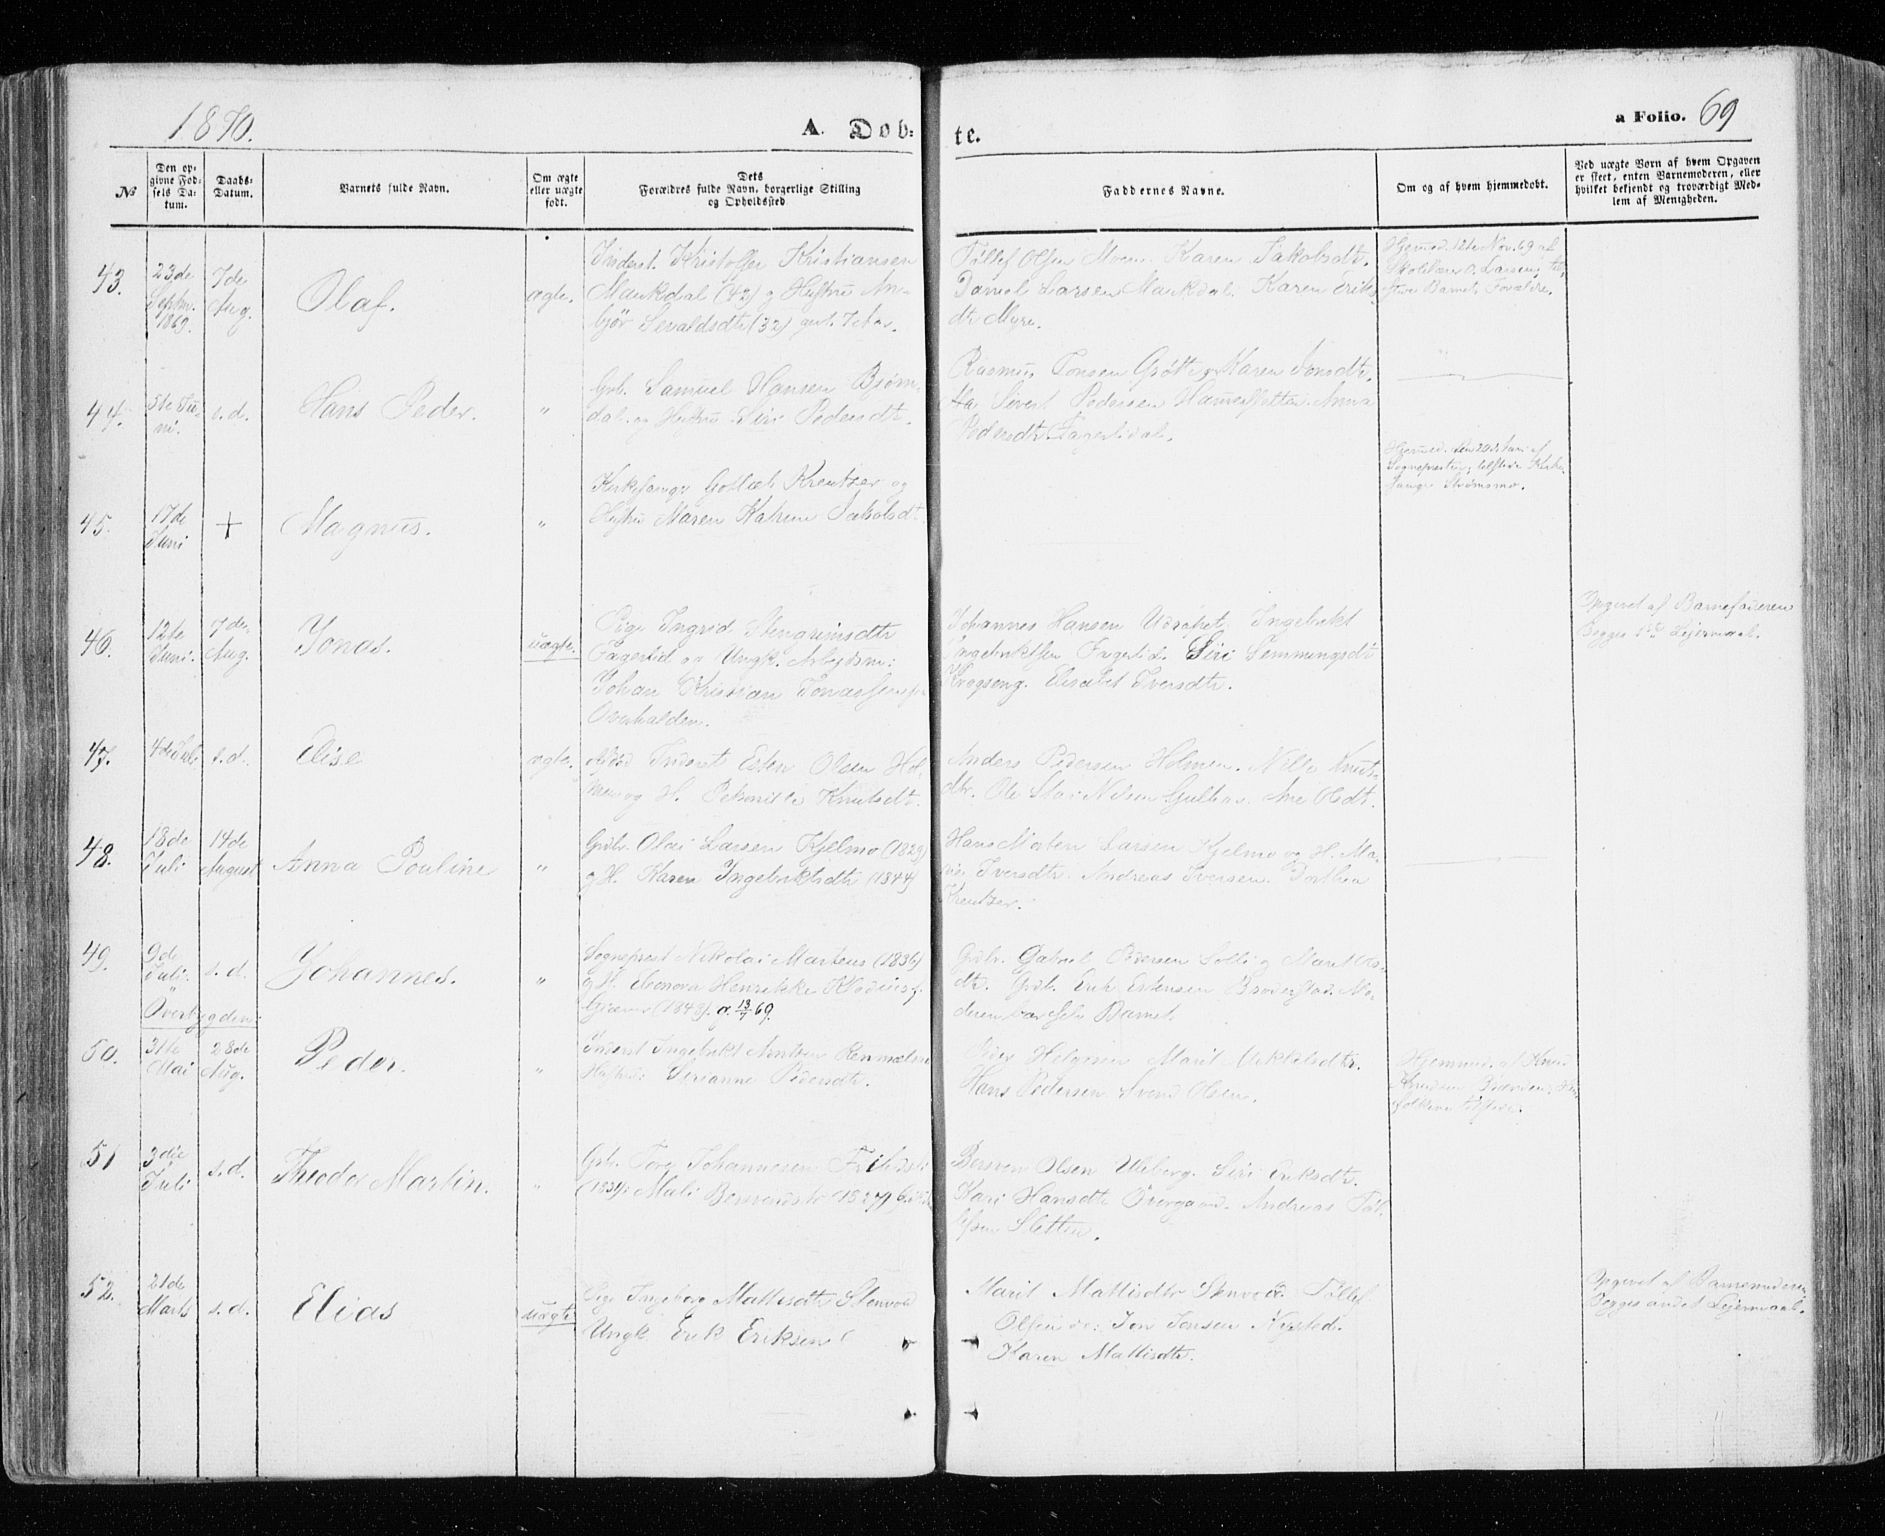 1870.
A. Døb:
te.
a Folio. 69
No
Den op-
givne Fød-
sels Da-
tum.
Daabs-
Datum.
Barnets fulde Navn.
Om ægte
eller uægte
født.
Dets
Forældres fulde Navn, borgerlige Stilling
og Opholdssted
Faddernes Navne.
Om og af hvem hjemmedøbt.
Ved uægte Børn af hvem Opgaven
er skeet, enten Barnemoderen, eller
hvilket bekjendt og troværdigt Med-
lem af Menigheden.
43.
23de
Septbr.
1869.
7de
Aug.
Olaf.
ægte.
Inderst. Kristoffer Kristiansen
Maukdal (42) og Hustru An-
bjør Sevaldsdtr (32)
Tollef Olsen Moen. Karen Jakobsdtr.
Daniel Larsen Maukdal. Karen Eriks
dtr Myre.
Hjemmed. 12te Nov. 69 af
Skolelærer O. Larsen, til
stede Barnets Forældre.
44.
5te Ju-
ni.
s. d.
Hans Peder.
"
Grb. Samuel Hansen Bjørn-
dal og Hustru Siri Pedersdtr.
Rasmus Tonsen Grøtte og Karen Jonsdtr.
Sivert Pedersen Anna
Pedersdtr. Fagerlidal.
45.
17de
Juni
+
Magnus.
"
Kirkesanger Gotlieb Kreutzer og
Hustru Maren Katrine Jakobsdtr.
Hjemmed. den af
Sognepresten, tilstede Kirke-
sanger Strømsmo.
46.
12te
Juni.
7de
Aug.
Jonas.
uægte.
Pige Ingrid Stenarimsdtr
Fagerlid og Ungk. Arbejdsm:
Johan Kristian Jonassen fra
Overhalden.
Johannes Hansen Ingebrikt
Ingebriktsen Fagerlid. Siri Semmingsdtr
Krogseng. Elisabet Iversdtr.
Opgivet af Barnefaderen
Begges 1ste Lejermaal.
47.
4de Juli.
s. d.
Elise
ægte.
Inderst Esten Olsen Hol-
men og H. Peternille Knutsdtr.
Anders Pedersen Holmen. Nille Knuts-
dtr. Ole Nilsen Ane Olsdtr.
48.
18de
Juli
14de
August
Anna Pouline
"
Grdbr. Olai Larsen Kjelmo (1829)
og H. Karen Ingebriktsdtr (1844)
Hans Morten Larsen Kjelmo og H. Ma-
rie Iversdtr. Andreas Iversen. Dorthea
Kreutzer.
49.
9de
Juli.
s. d.
Johannes.
"
Sogneprest Nikolai Martens (1836)
og H. Eleonora Henrikke Klodius f.
Gjæver (1848). g. 13/7 69.
Grdbr. Gabriel Pedersen Solli og Marit Ols-
dtr. Grdbr. Erik Estensen Broderstad. Mo-
deren bar selv Barnet.
Øverbygden:
50.
31te
Mai
28de
Aug.
Peder.
"
Inderst Ingebrikt Arntsen Renmælmo
Hustru: Serianne Pedersdtr.
Peder Helgesen Marit Mikkelsdtr.
Hans Pedersen Svend Olsen.
Hjemmed. af Knud
Knudsen
folkene tilstede.
51
3die
Juli
s. d.
Theodor Martin.
"
Grbr. Tore Johannesen
(1831): Mali Bersvendsdtr (1827)
Bersven Olsen Uleberg. Siri Eriksdtr.
Kari Hansdtr Øvergaard. Andreas Tol-
lefsen Sletten.
52.
21de
Marts
s. d.
Elias
uægte
Pige Ingeborg Mattisdtr Stenvold
Ungk Erik Eriksen
Marit Mattisdtr Stenvold Tollef
Olsen do: Jon Jonsen Nystad.
Karen Mattisdtr.
Opgivet af Barnemoderen
Begges andet Lejermaal.